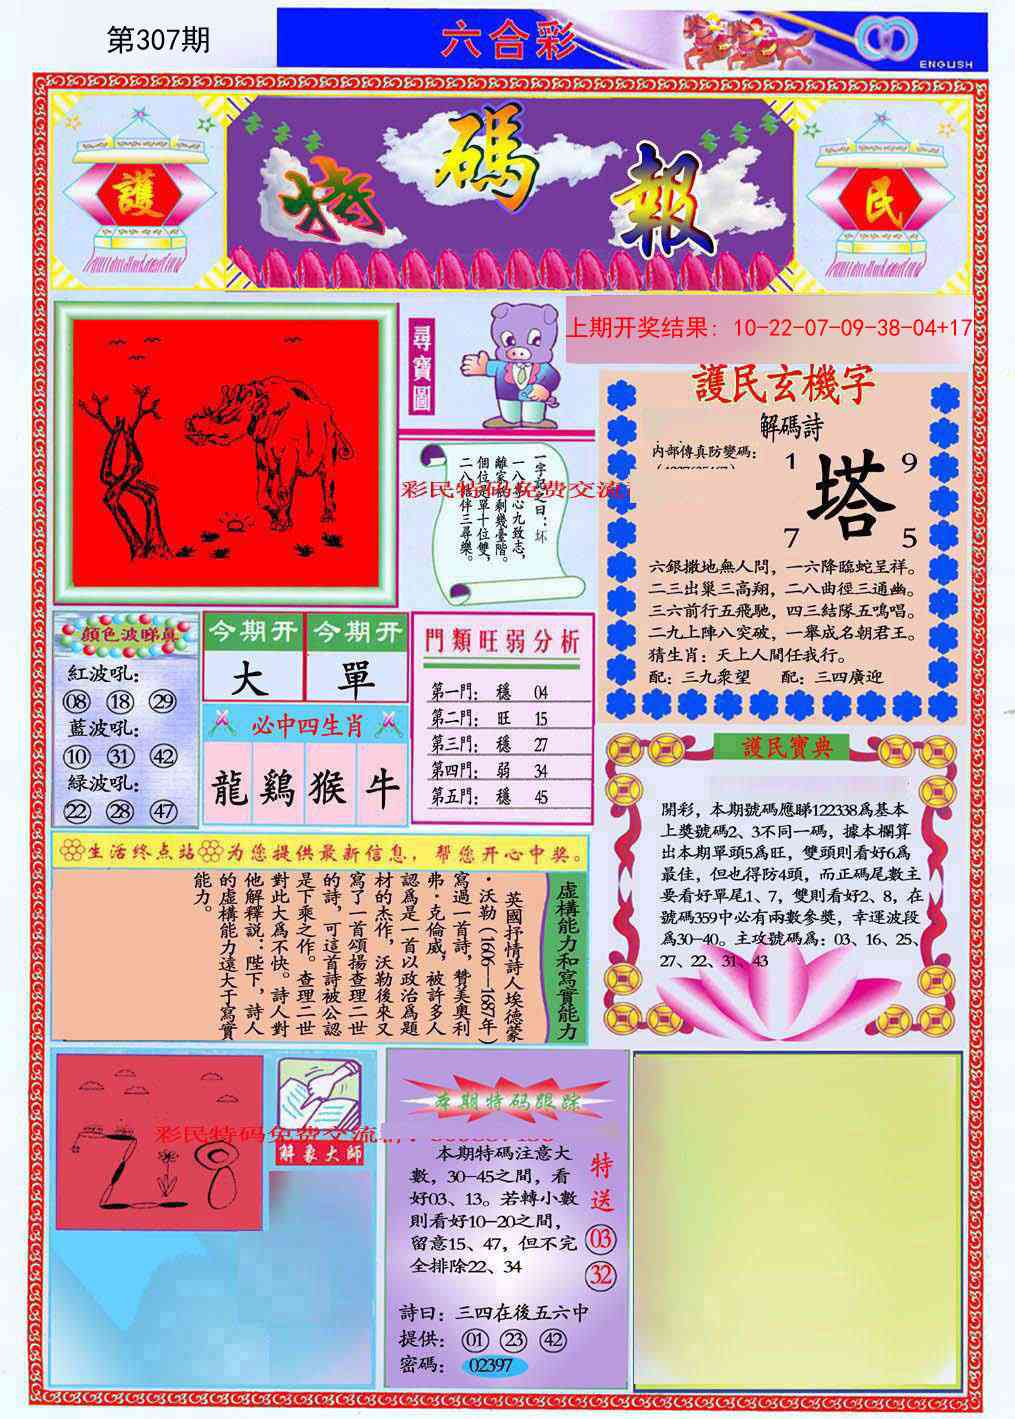 第307期
六合彩
ENGLISH
護
特碼報
民
尋寶圖
上期开奖结果：10-22-07-09-38-04+17
護民玄機字
解碼詩
内部傳真防變碼：
1
9
塔
7
5
六銀撒地無人問，一六降臨蛇呈祥。
二三出巢三高翔，二八曲徑三通幽。
三六前行五飛馳，四三結隊五鳴唱。
二九上陣八突破，一舉成名朝君王。
猜生肖：天上人間任我行。
配：三九衆望 配：三四廣迎
一字記之曰：坏
個位是單十位雙，
二八結伴三尋樂。
彩民特码免费交流
顔色波睇真
紅波吼：
08 18 29
藍波吼：
10 31 42
緑波吼：
22 28 47
今期开 今期开
大 單
必中四生肖
龍 鷄 猴 牛
門類旺弱分析
第一門： 穩 04
第二門： 旺 15
第三門： 穩 27
第四門： 弱 34
第五門： 穩 45
護民寶典
開彩，本期號碼應睇122338爲基本
上獎號碼2、3不同一碼，據本欄算
出本期單頭5爲旺，雙頭則看好6爲
最佳，但也得防4頭，而正碼尾數主
要看好單尾1、7，雙則看好2、8，在
號碼359中必有兩數參獎，幸運波段
爲30-40。主攻號碼爲：03、16、25、
27、22、31、43
生活终点站 为您提供最新信息，帮您开心中奖。
虚構能力和寫實能力
英國抒情詩人埃德蒙
·沃勒（1606—1687年）
寫過一首詩，贊美奧利
弗·克倫威，被許多人
認爲是一首以政治爲題
材的杰作，沃勒後來又
寫了一首頌揚查理二世
的詩，可這首詩被公認
是下乘之作。查理二世
對此大爲不快。詩人對
他解釋説：陛下，詩人
的虚構能力遠大于寫實
能力。
彩民特码免费交流
解象大師
本期特码跟踪
本期特碼注意大
數，30-45之間，看
好03、13。若轉小數
則看好10-20之間，
留意15、47，但不完
全排除22、34
特送
03
32
詩曰：三四在後五六中
提供：01 23 42
密碼：02397